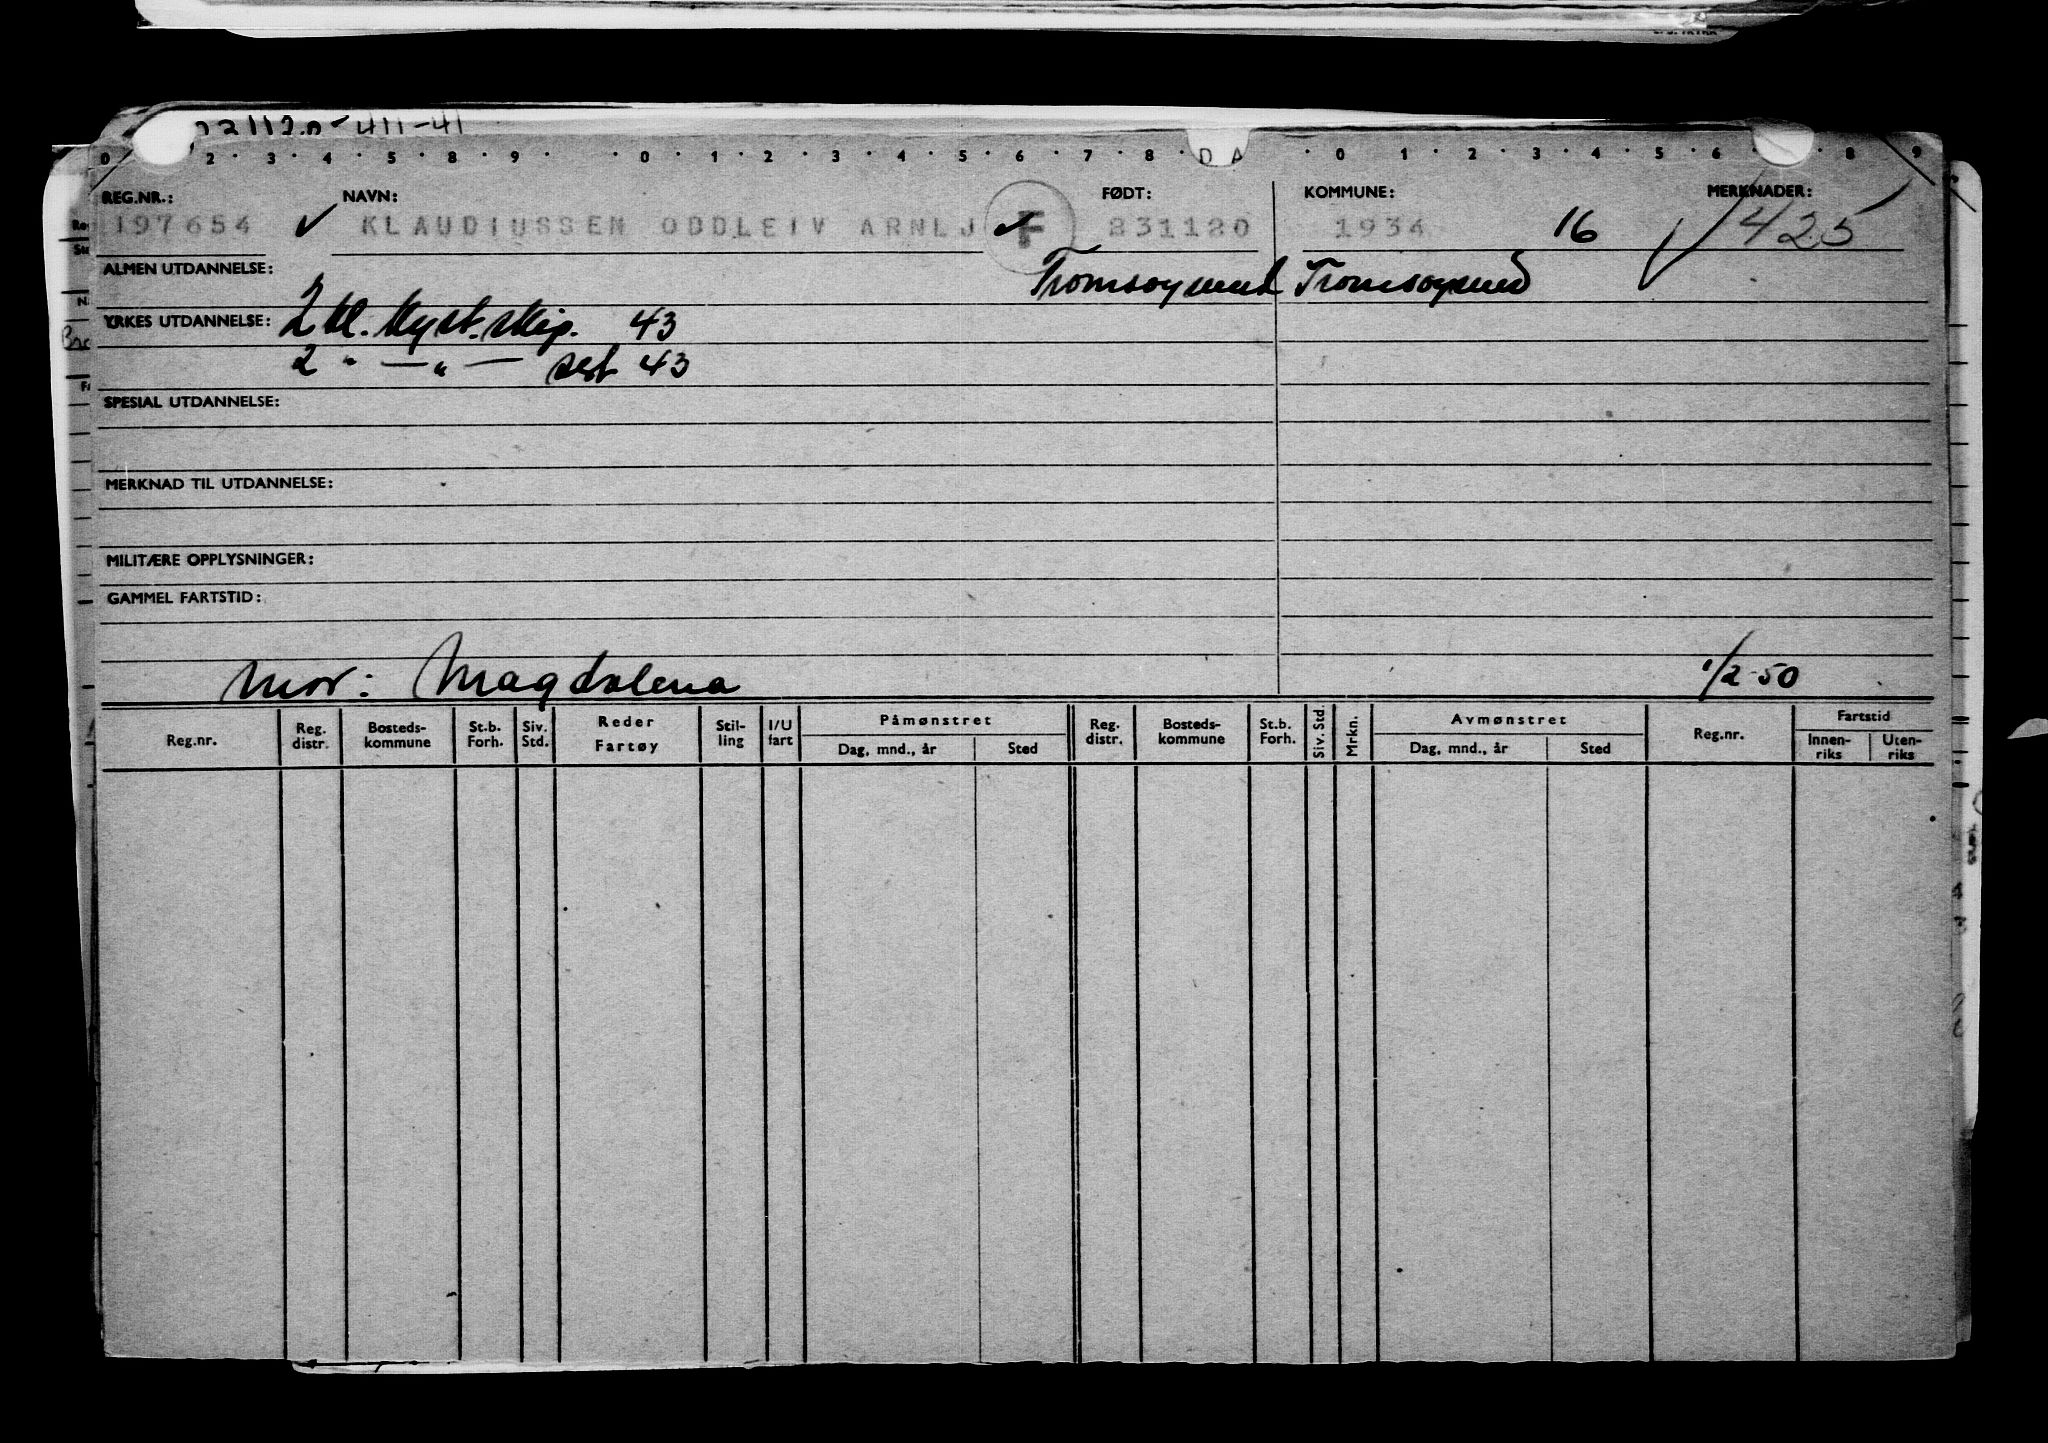 411-41
0 2 3 4 5 8 9 0 1 2 3 4 5 6 7 8 D A 0 1 2 3 4 5 6 8 9
REG.NR.: NAVN: FØDT: KOMMUNE: MERKNADER:
197654 ✓ KLAUDIUSSEN ODDLEIV ARNLJ ✓ F 231120 1934 16 ✓ 425
ALMEN UTDANNELSE: Tromsøysund Tromsøysund
YRKES UTDANNELSE: 2 kl. kyst. skip. 43
2 " — " — sert 43
SPESIAL UTDANNELSE:
MERKNAD TIL UTDANNELSE:
MILITÆRE OPPLYSNINGER:
GAMMEL FARTSTID:
Mor: Magdalena 1/2-50
Reg.nr. Reg. distr. Bosteds-kommune St.b. Forh. Siv. Std. Reder Fartøy Stil-ling I/U fart Påmønstret Dag, mnd., år Sted Reg. distr. Bosteds-kommune St.b. Forh. Siv. Std. Mrkn. Avmønstret Dag, mnd., år Sted Reg.nr. Fartstid Innen-riks Uten-riks